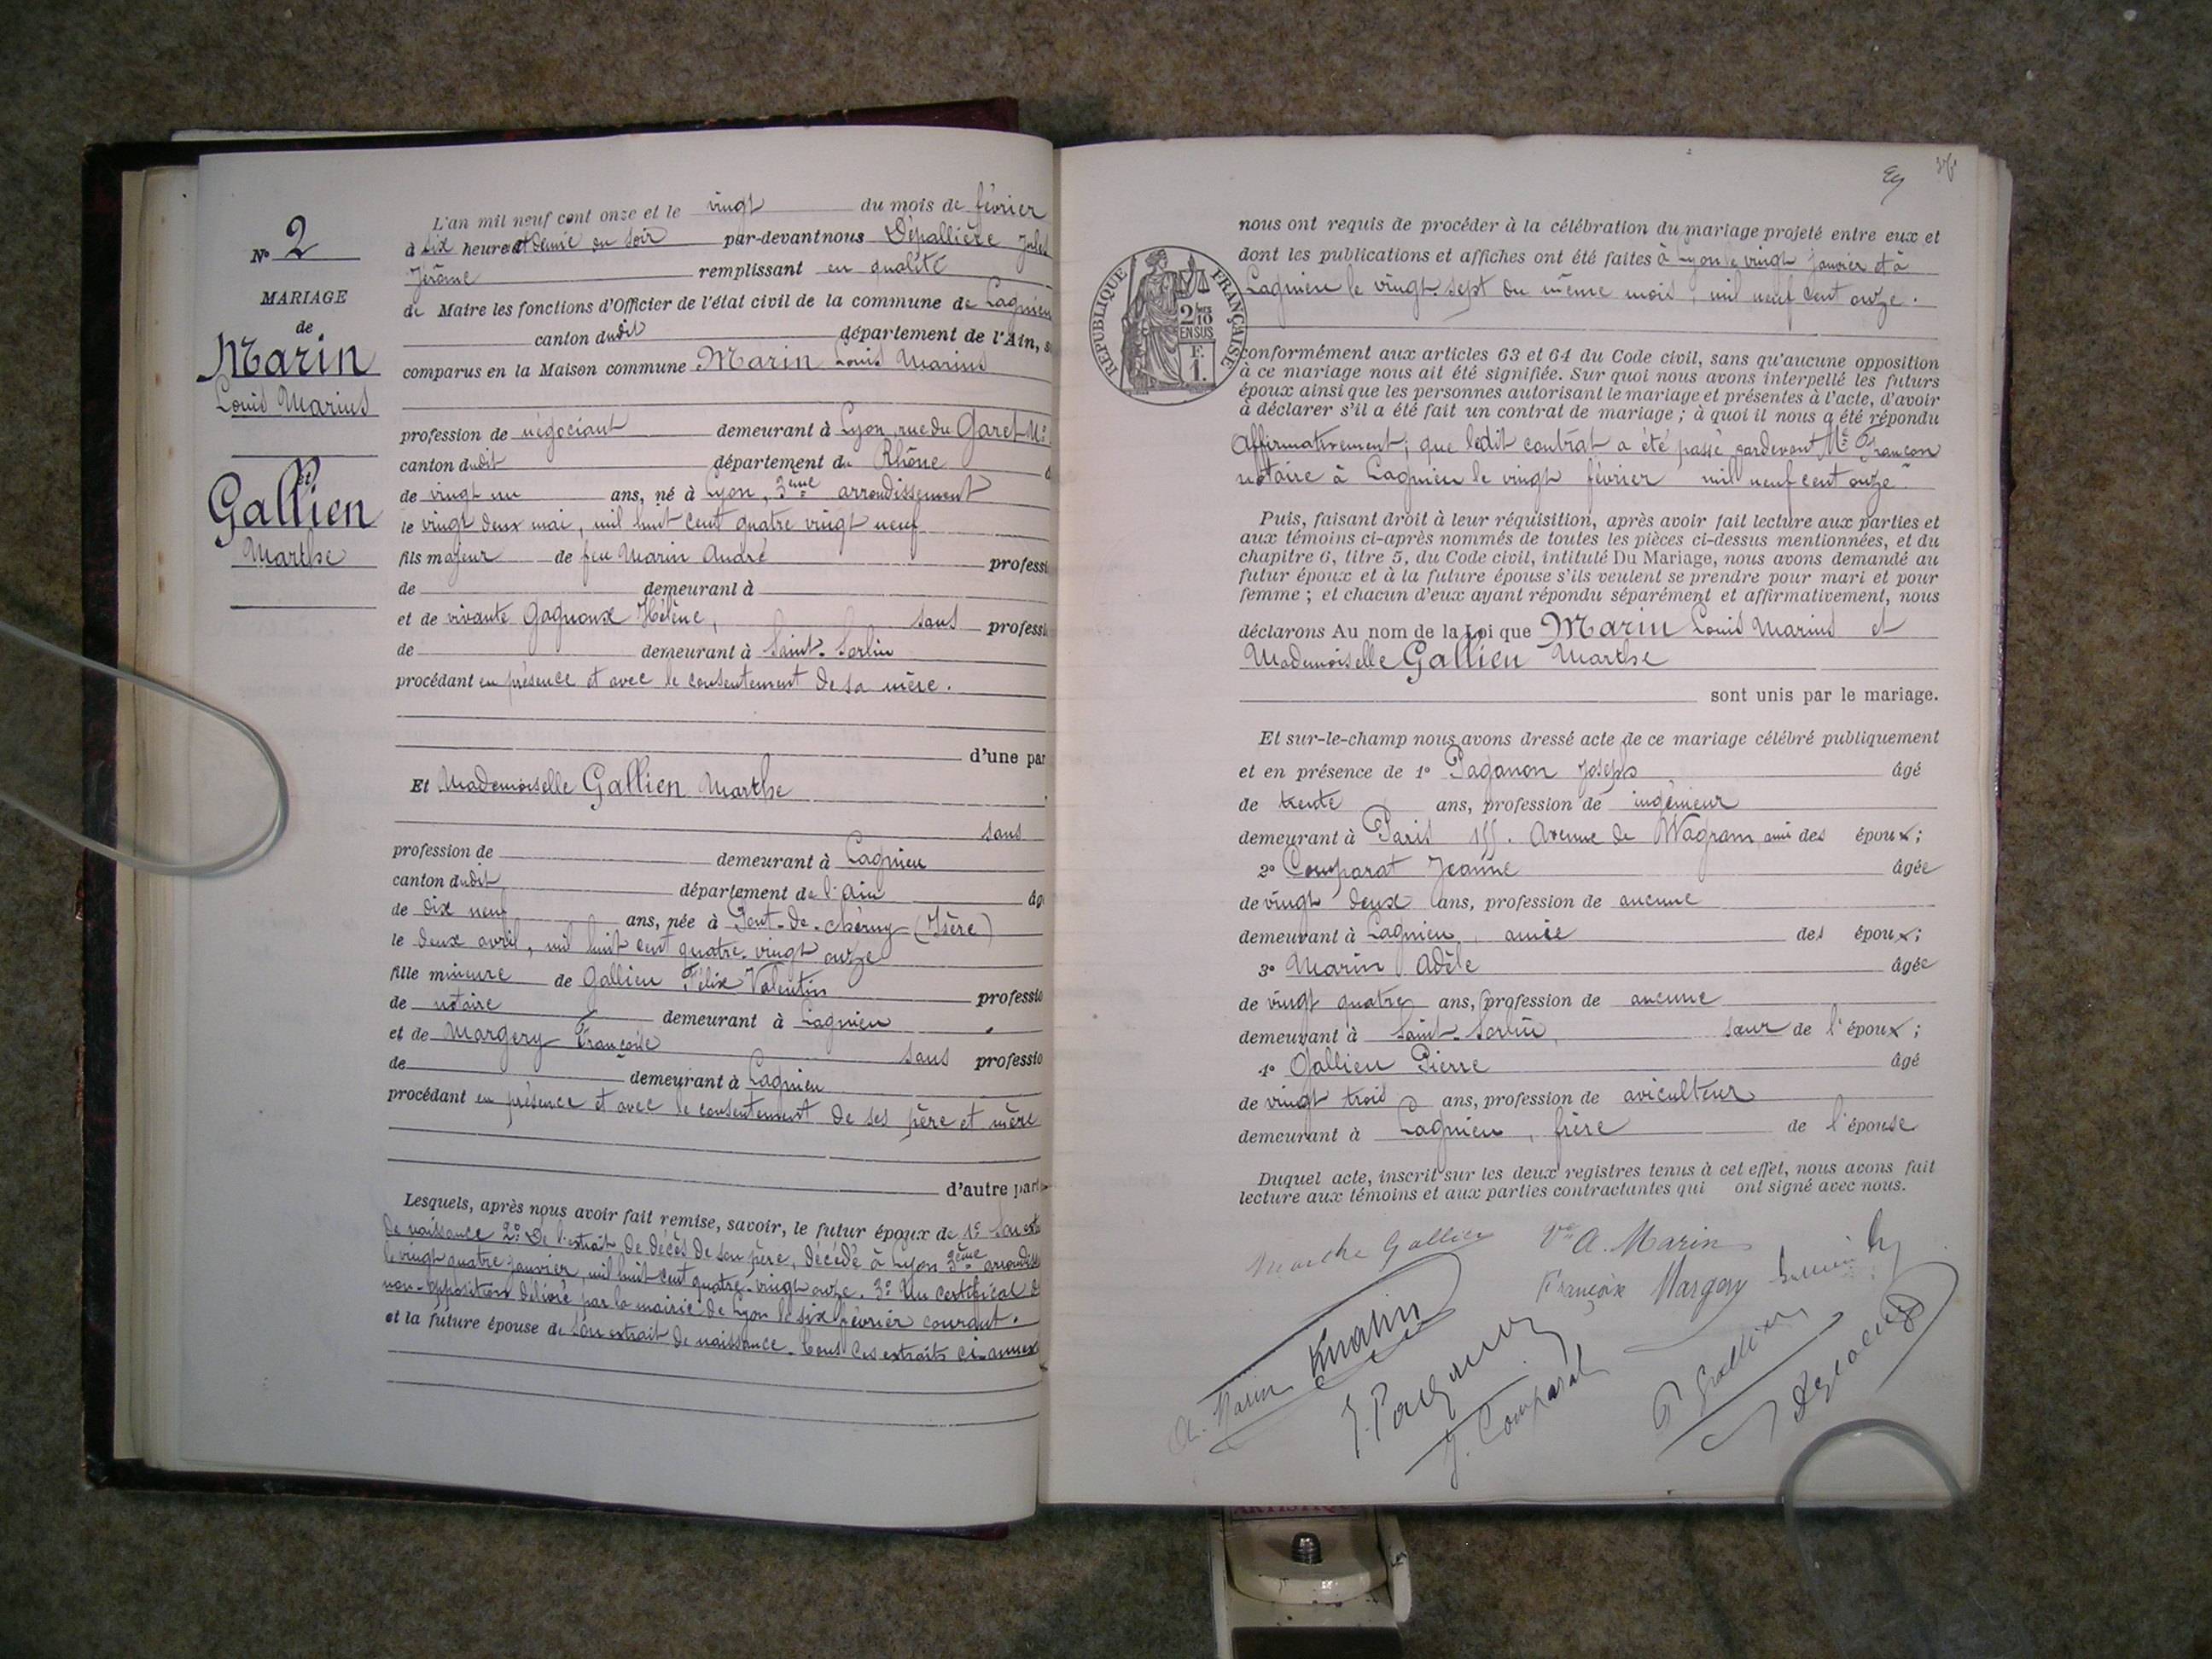 N° 2
MARIAGE
de
Marin
Louis Marius
et
Gallien
Marthe
L'an mil neuf cent onze et le vingt du mois de février
à six heures et demie du soir par-devant nous Dépallière Jules
Jérôme remplissant en qualité
de Maire les fonctions d'Officier de l'état civil de la commune de Lagnieu
canton dudit département de l'Ain, s
comparus en la Maison commune Marin Louis Marius
profession de négociant demeurant à Lyon, rue du Garet N°
canton dudit département du Rhône
de vingt un ans, né à Lyon, 3ème arrondissement
le vingt deux mai, mil huit cent quatre vingt neuf
fils majeur de feu Marin André professi
de demeurant à
et de vivante Gagnoux Hélène, sans professi
de demeurant à Saint-Sorlin
procédant en présence et avec le consentement de sa mère.
d'une par
Et Mademoiselle Gallien Marthe
sans
profession de demeurant à Lagnieu
canton dudit département de l'Ain âg
de dix neuf ans, née à Pont-de-Chéruy (Isère)
le deux avril, mil huit cent quatre-vingt onze
fille mineure de Gallien Félix Valentin professio
de notaire demeurant à Lagnieu
et de Margery Françoise sans professio
de demeurant à Lagnieu
procédant en présence et avec le consentement de ses père et mère
d'autre part
Lesquels, après nous avoir fait remise, savoir, le futur époux de 1° Son ext
de naissance 2° De l'extrait de décès de son père, décédé à Lyon 3ème arrondiss
le vingt quatre janvier, mil huit cent quatre-vingt onze. 3° Un certificat d
non-opposition délivré par la mairie de Lyon le six février courant.
et la future épouse de son extrait de naissance. Tous ces extraits ci-annex
nous ont requis de procéder à la célébration du mariage projeté entre eux et
dont les publications et affiches ont été faites à Lyon le vingt janvier et à
Lagnieu le vingt-sept du même mois, mil neuf cent onze.
RÉPUBLIQUE FRANÇAISE
2/10
EN SUS
F.
1.
conformément aux articles 63 et 64 du Code civil, sans qu'aucune opposition
à ce mariage nous ait été signifiée. Sur quoi nous avons interpellé les futurs
époux ainsi que les personnes autorisant le mariage et présentes à l'acte, d'avoir
à déclarer s'il a été fait un contrat de mariage ; à quoi il nous a été répondu
Affirmativement ; que ledit contrat a été passé pardevant Me Françon
notaire à Lagnieu le vingt février mil neuf cent onze.
Puis, faisant droit à leur réquisition, après avoir fait lecture aux parties et
aux témoins ci-après nommés de toutes les pièces ci-dessus mentionnées, et du
chapitre 6, titre 5, du Code civil, intitulé Du Mariage, nous avons demandé au
futur époux et à la future épouse s'ils veulent se prendre pour mari et pour
femme ; et chacun d'eux ayant répondu séparément et affirmativement, nous
déclarons Au nom de la Loi que Marin Louis Marius et
Mademoiselle Gallien Marthe
sont unis par le mariage.
Et sur-le-champ nous avons dressé acte de ce mariage célébré publiquement
et en présence de 1° Paganon Joseph âgé
de trente ans, profession de ingénieur
demeurant à Paris 155. Avenue de Wagram, ami des époux ;
2° Comparat Jeanne âgée
de vingt deux ans, profession de aucune
demeurant à Lagnieu, amie des époux ;
3° Marin Adèle âgée
de vingt quatre ans, profession de aucune
demeurant à Saint-Sorlin, sœur de l'époux ;
4° Gallien Pierre âgé
de vingt trois ans, profession de aviculteur
demeurant à Lagnieu, frère de l'épouse
Duquel acte, inscrit sur les deux registres tenus à cet effet, nous avons fait
lecture aux témoins et aux parties contractantes qui ont signé avec nous.
Marthe Gallien Vve A. Marin
Françoise Margery
Marin
A. Marin J. Paganon J. Comparat P. Gallien